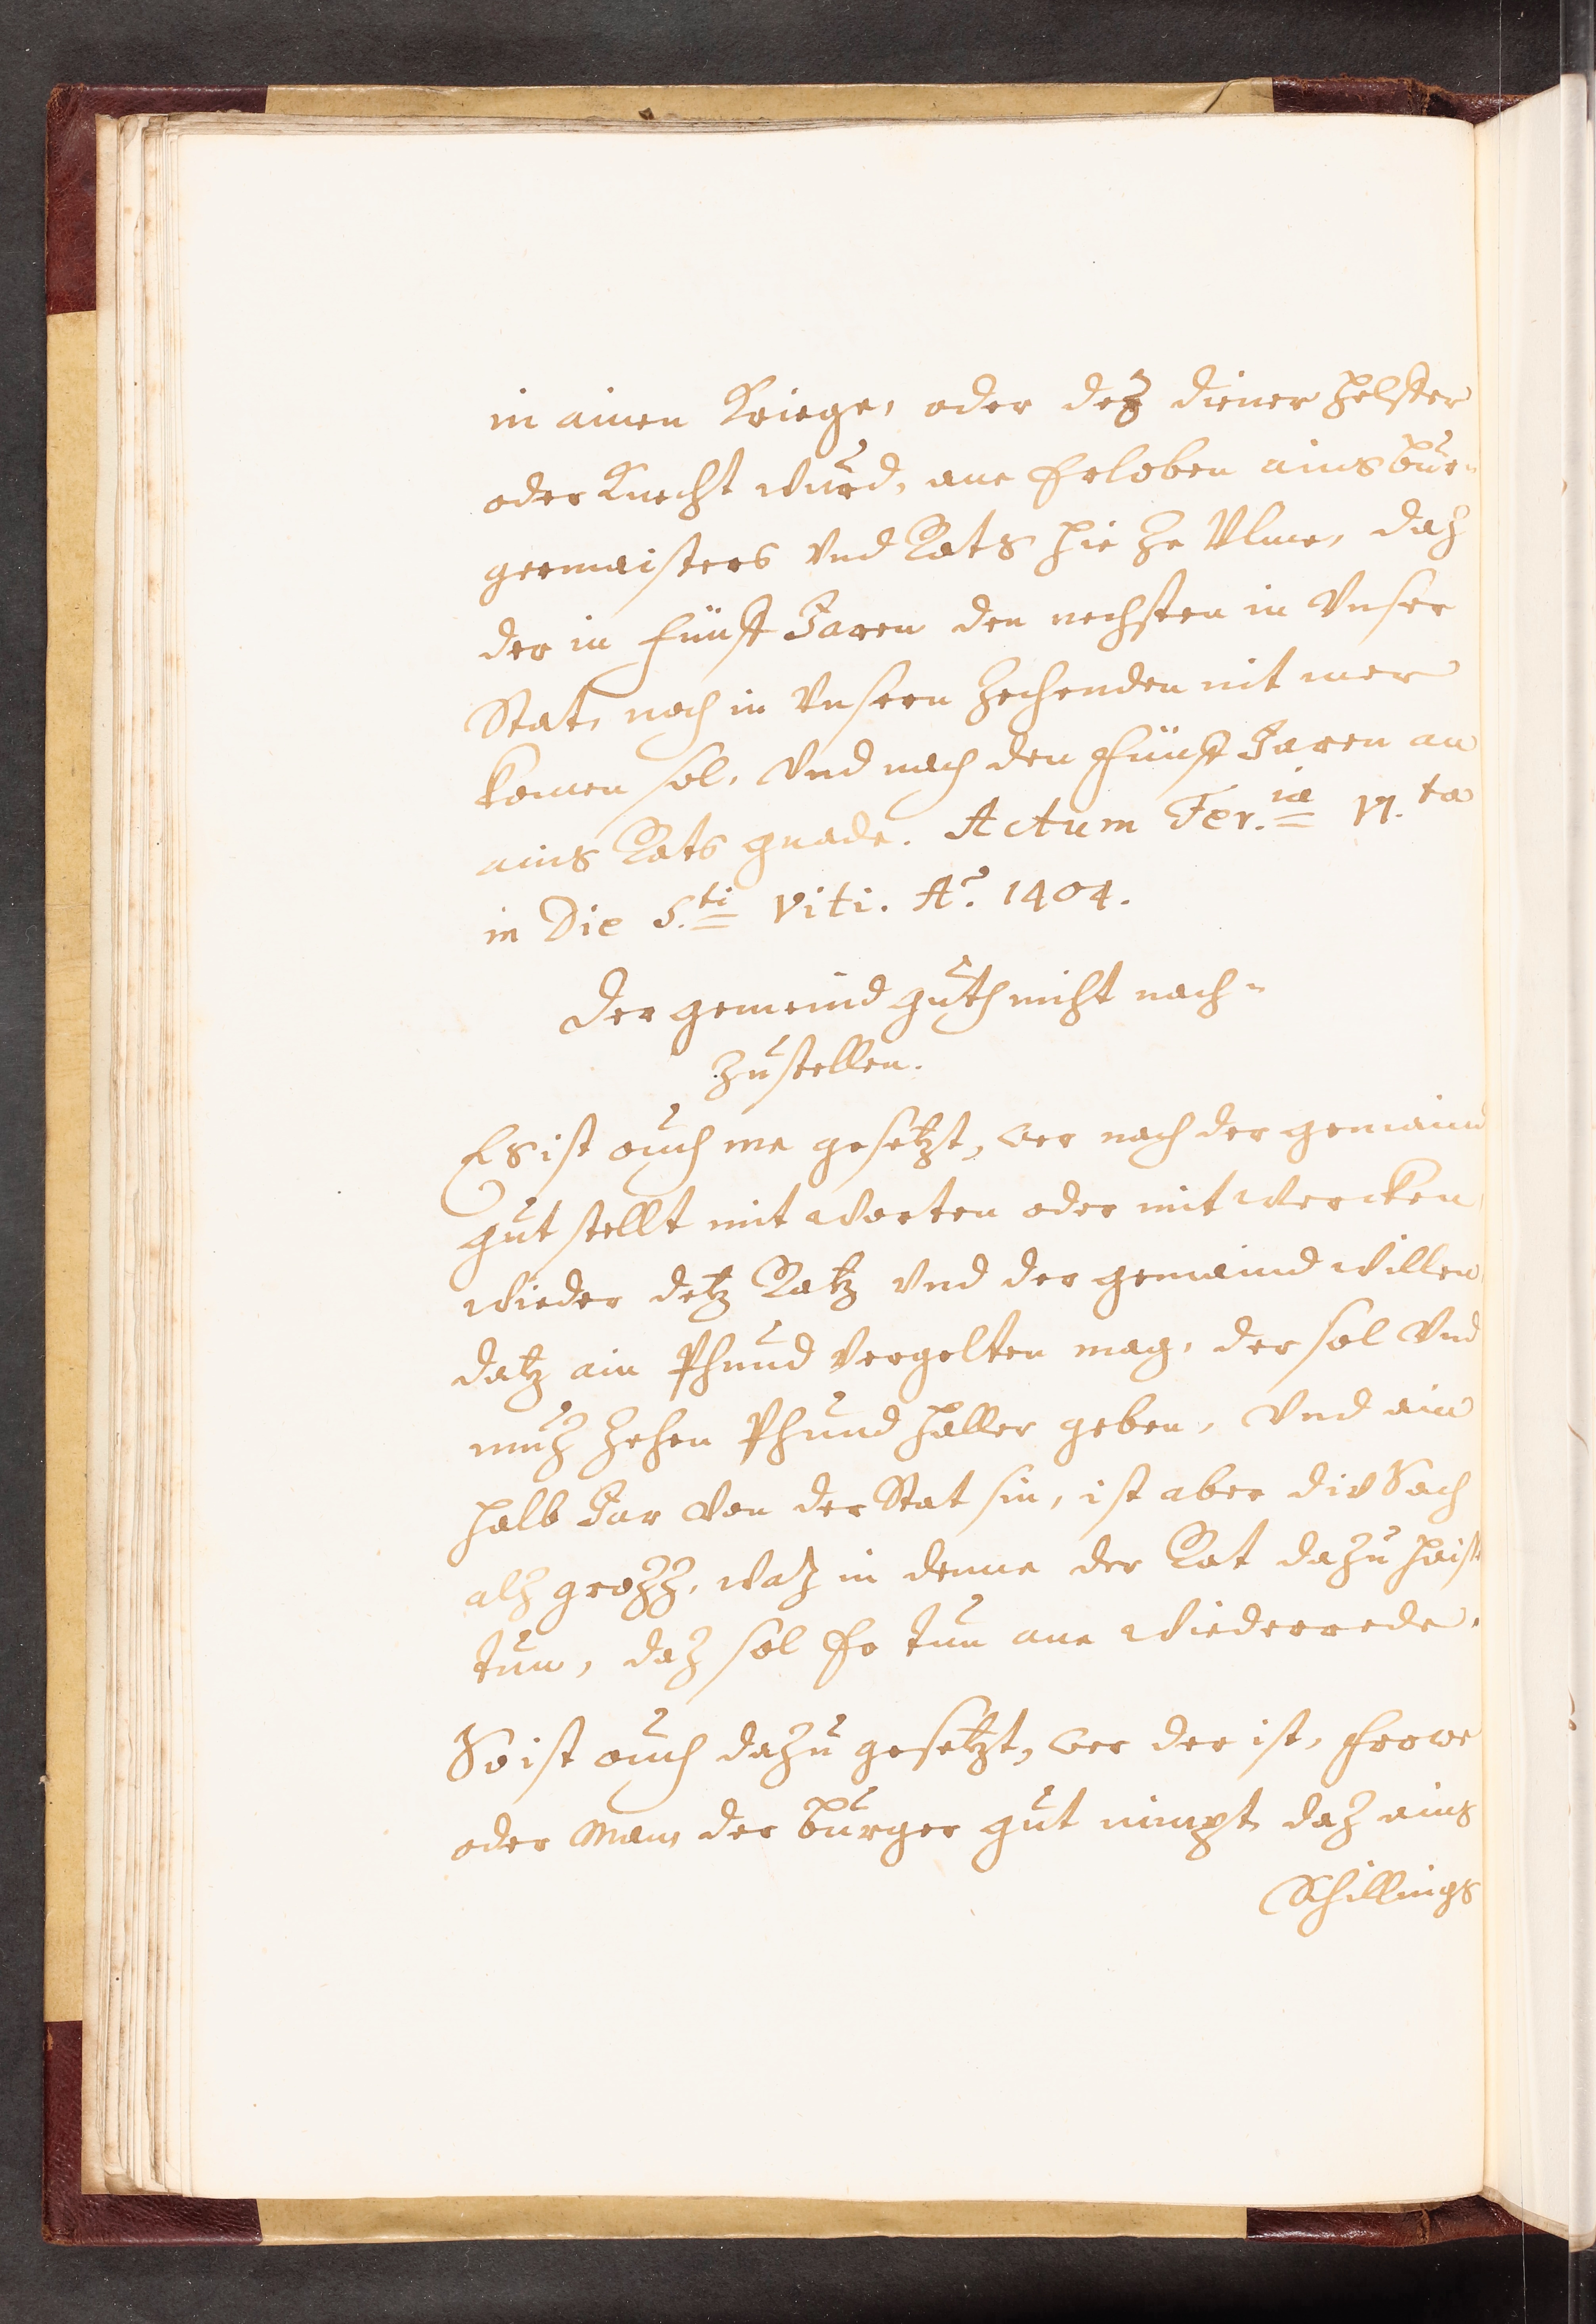 in ainen Kriege, oder detz diener helffer
oder Knecht wurd, ane Erloben ains bur-
germaisters Vnd Rats hie ze Ulme, daz
der in fünff Jaren den nechsten in Vnser
Stat, noch in Vnsern Zechenden nit mer
komen sol, Vnd nach den fünff Jaren an
ains Rats gnade. Actum Fer.iæ VI.ta
in Die S.ti Viti. Aº. 1404.
Der gemeind guth nicht nach-
zustellen.
Es ist ouch me gesetzt, wer nach der gemaind
gut stellt mit worten oder mit wercken,
wieder detz Ratz Vnd der gemaind willen,
datz ain Phund Vergelten mag, der sol Vnd
muz zehen Phund haller geben, Vnd ain
halb Jar Von der Stat sin, ist aber div Sach
alz grozz, waz in denne der Rat dazu haist
tun, daz sol Er tun ane wiederrede.
So ist ouch dazu gesetzt, wer der ist, frowe
oder Man, der burger gut nimpt, daz ains
Schillings